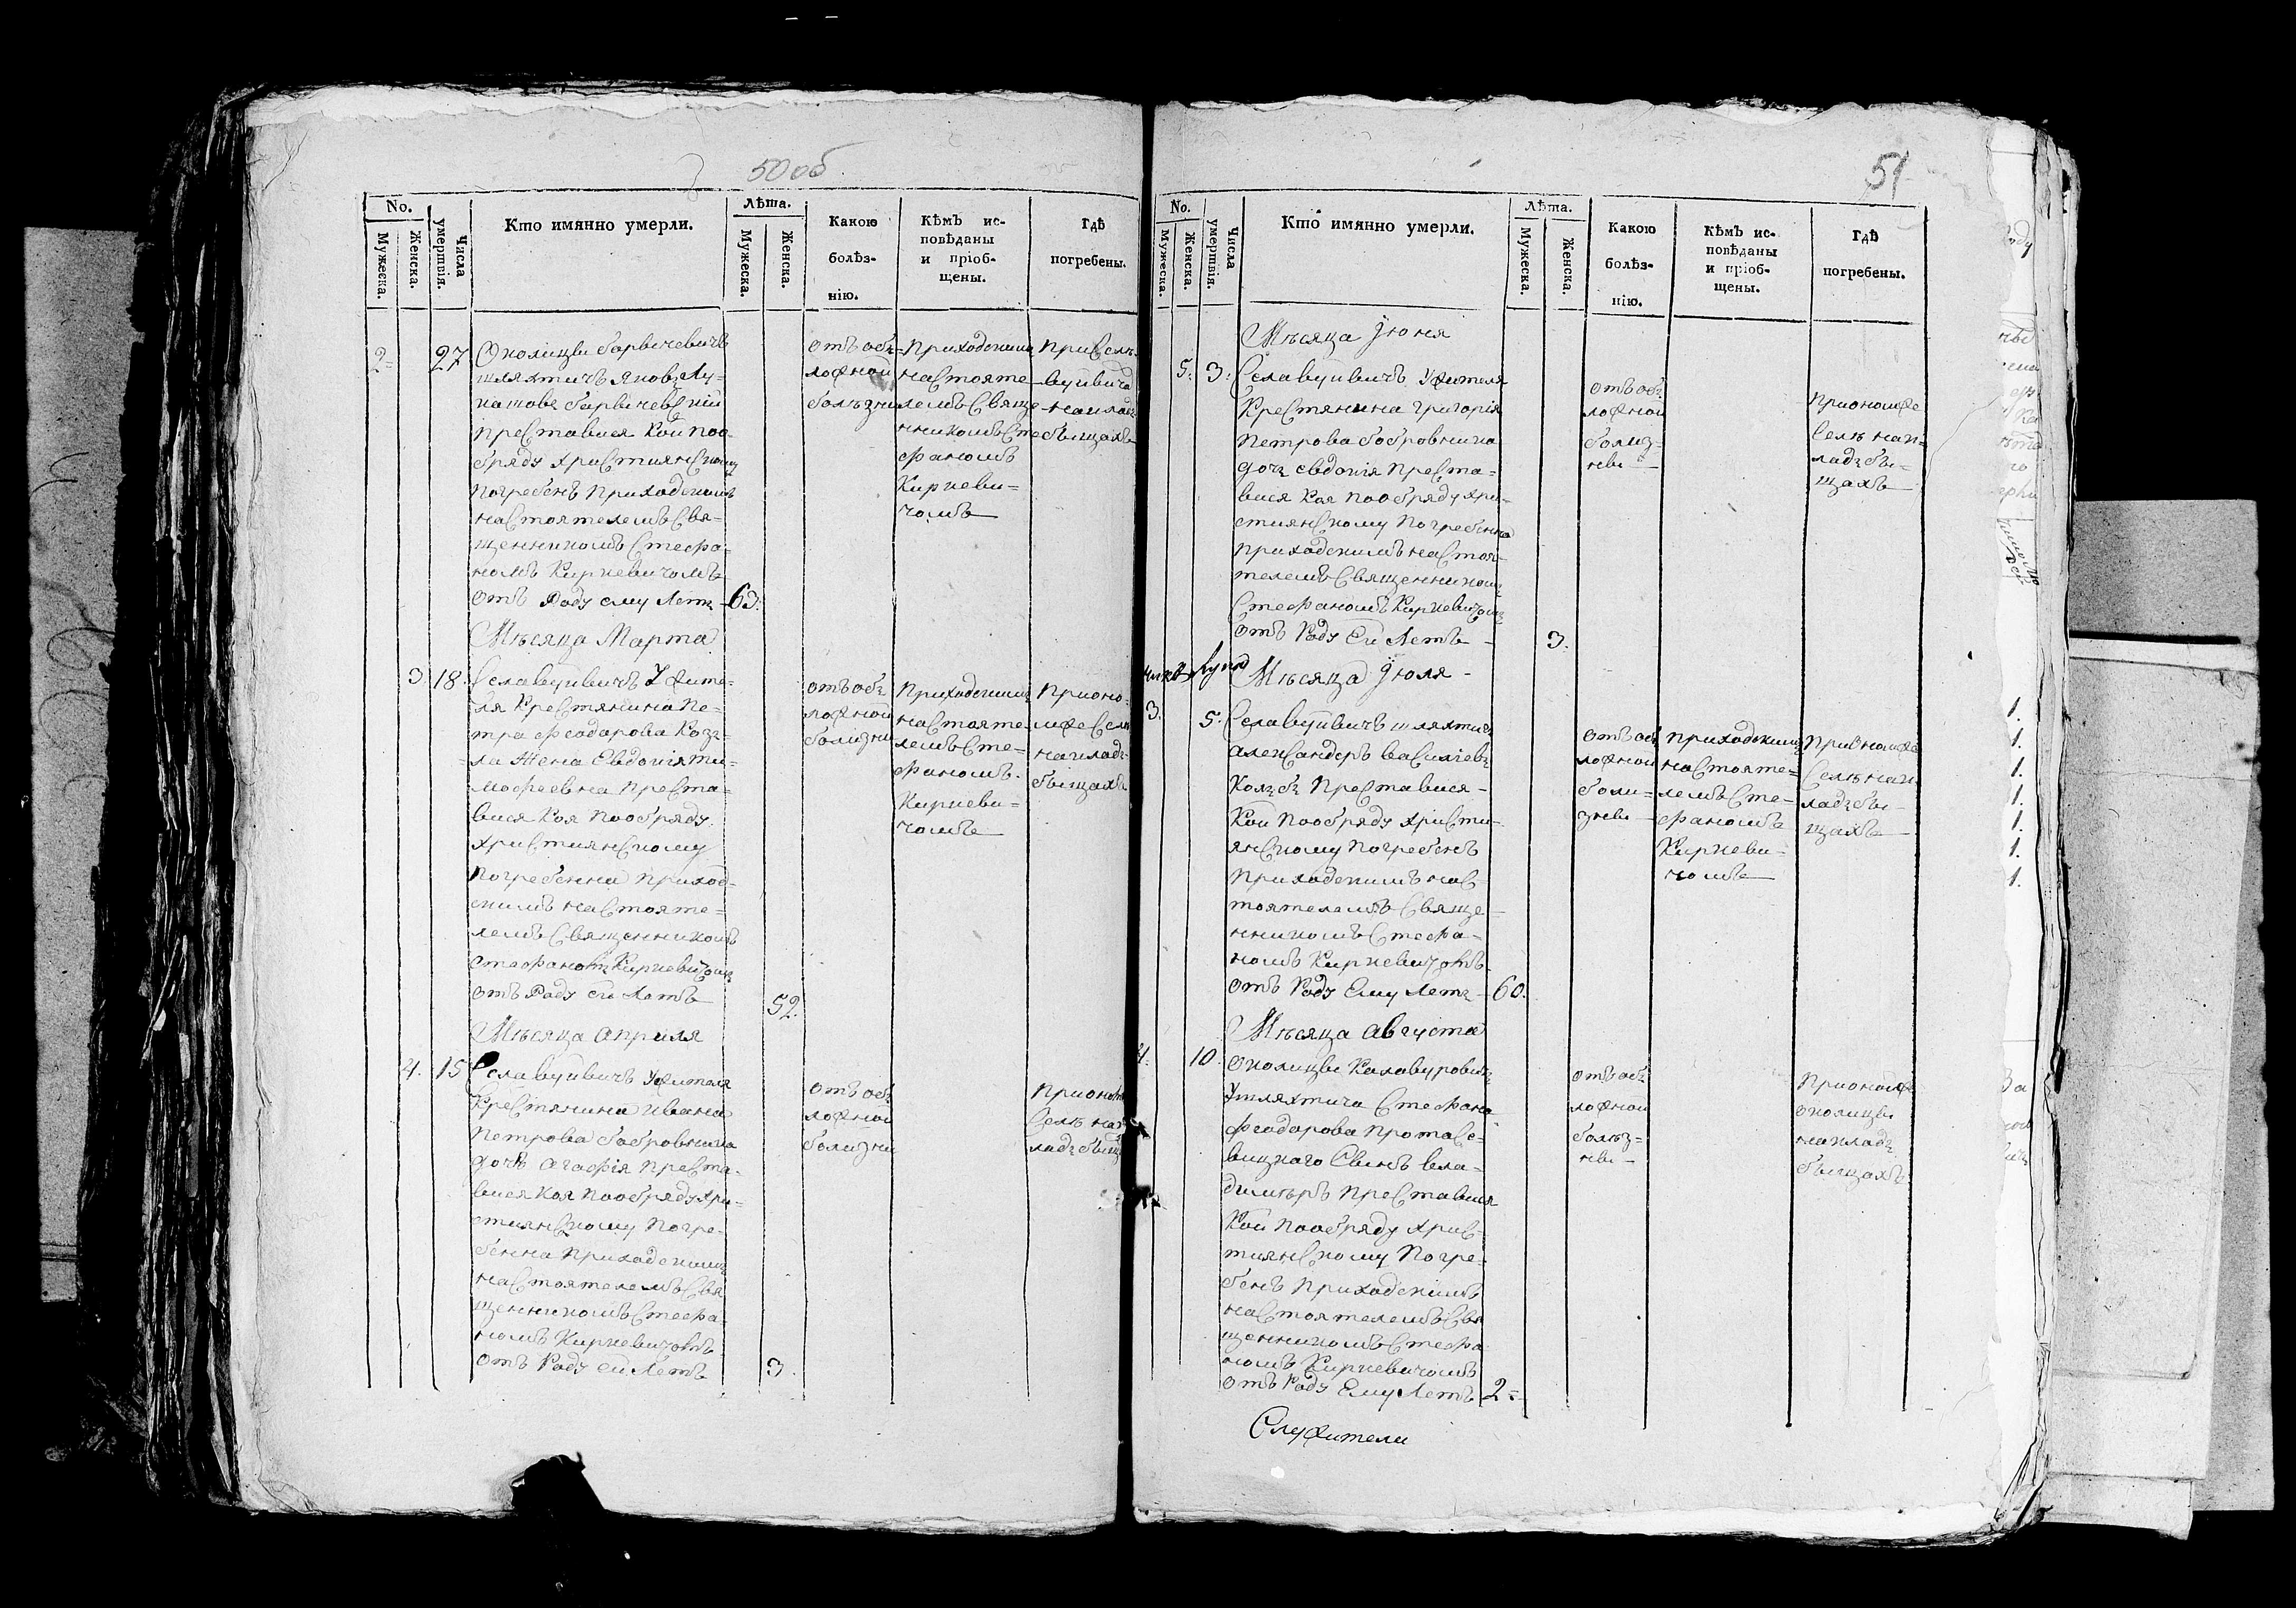 50 об
No.
Мужеска.
Женска.
Числа умертвія.
Кто имянно умерли.
Лѣта.
Мужеска.
Женска.
Какою болѣз-
нію.
Кѣмъ ис-
повѣданы
и пріоб-
щены.
Гдѣ
погребены.
2 27
Околицы
шляхтичъ Яковъ Лу-
преставися Кой поо-
бряду християнскому
погребенъ приходскимъ
настоятелемъ Свя-
щенникомъ Стефа-
номъ Киркевичомъ
отъ Роду ему Летъ 63.
отъ обѣ-
ложной
болѣзни
Приходскимъ
настояте-
лемъ Свяще-
нникомъ Сте
фаномъ
Киркеви-
чомъ
При Селѣ
вуйвича
на клад
быщахъ
Мѣсяца Марта
3 18.
Села вуйвичъ Ужите-
ля Крестянина Пе-
тра Феодорова Коз-
ла жена Евдокія Ти-
мофеевна Преста-
вися Коя Пообряду
християнскому
Погребенна Приход-
скимъ настояте-
лемъ Священникомъ
Стефаномъ Киркевичомъ
отъ Роду ей Летъ 52.
отъ обѣ
ложной
болизни
Приходскимъ
настояте-
лемъ Сте-
фаномъ
Киркеви-
чомъ
При оно-
мже Селѣ
на клад-
быщахъ
Мѣсяца Априля
4. 15
Села вуйвичъ Ужителя
Крестянина Ивана
Петрова бобровника
дочъ Агафія Преста-
вися Коя Пообряду Хри-
стиянскому Погре-
бенна Приходскимъ
настоятелемъ Свя
щенникомъ Стефа-
номъ Киркевичомъ
отъ Роду ей Летъ 3.
отъ обѣ
ложной
болизни
При оном
Селѣ на
ладъбыщ
51
No.
Мужеска.
Женска.
Числа умертвія.
Кто имянно умерли.
Лѣта.
Мужеска.
Женска.
Какою
болѣз-
нію.
Кѣмъ ис-
повѣданы
и пріоб-
щены.
Гдѣ
погребены.
Мѣсяца Іюня
5. 3.
Села вуйвичъ Ужителя
Крестянина Григорія
Петрова бобровника
дочъ Евдокія Преста-
вися Коя Пообряду Хри-
стиянскому Погребенна
приходскимъ настоя-
телемъ Священникомъ
Стефаномъ Киркевичомъ
отъ Роду Ей Летъ - 3.
отъ обѣ
ложной
болиз-
неы
При ономже
Селѣ на к-
ладъбы-
щахъ
Мѣсяца Іюля -
3. 5.
Села вуйвичъ шляхтичъ
Александеръ Василіевъ
Преставися -
Кой Пообряду Христи-
янскому Погребенъ
Приходскимъ нас-
тоятелемъ Свяще-
нникомъ Стефа-
номъ Киркевичомъ
отъ Роду Ему Летъ 60.
отъ обѣ
ложной
боли-
зневы
Приходскимъ
настояте-
лемъ Сте-
фаномъ
Киркеви-
чомъ
При ономже
Селѣ на к
ладъбы-
щахъ
Мѣсяца Августа
4. 10.
Околицы
Ушляхтича Стефана
Феодорова
Сынъ Вла-
димѣръ Преставися
Кой пообряду хрис-
тиянскому Погре-
бенъ Приходскимъ
настоятелемъ Свя
щенникомъ Стефа-
номъ Киркевичомъ
отъ Роду Ему Летъ 2 =
отъ обѣ
ложной
болѣз-
неы
При ономже
околицы
на кладъ
быщахъ
Служители